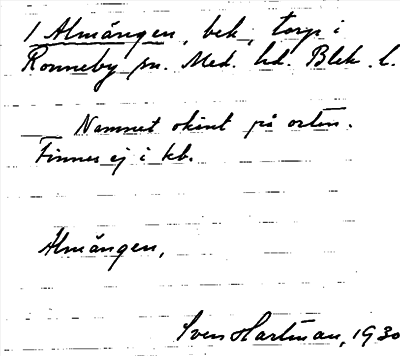 1 Almängen, bek., torp i
Ronneby sn. Med. hd. Blek. l.
Namnet okänt på orten.
Finnes ej i kb.
Almängen,
Sven Hartman, 1930